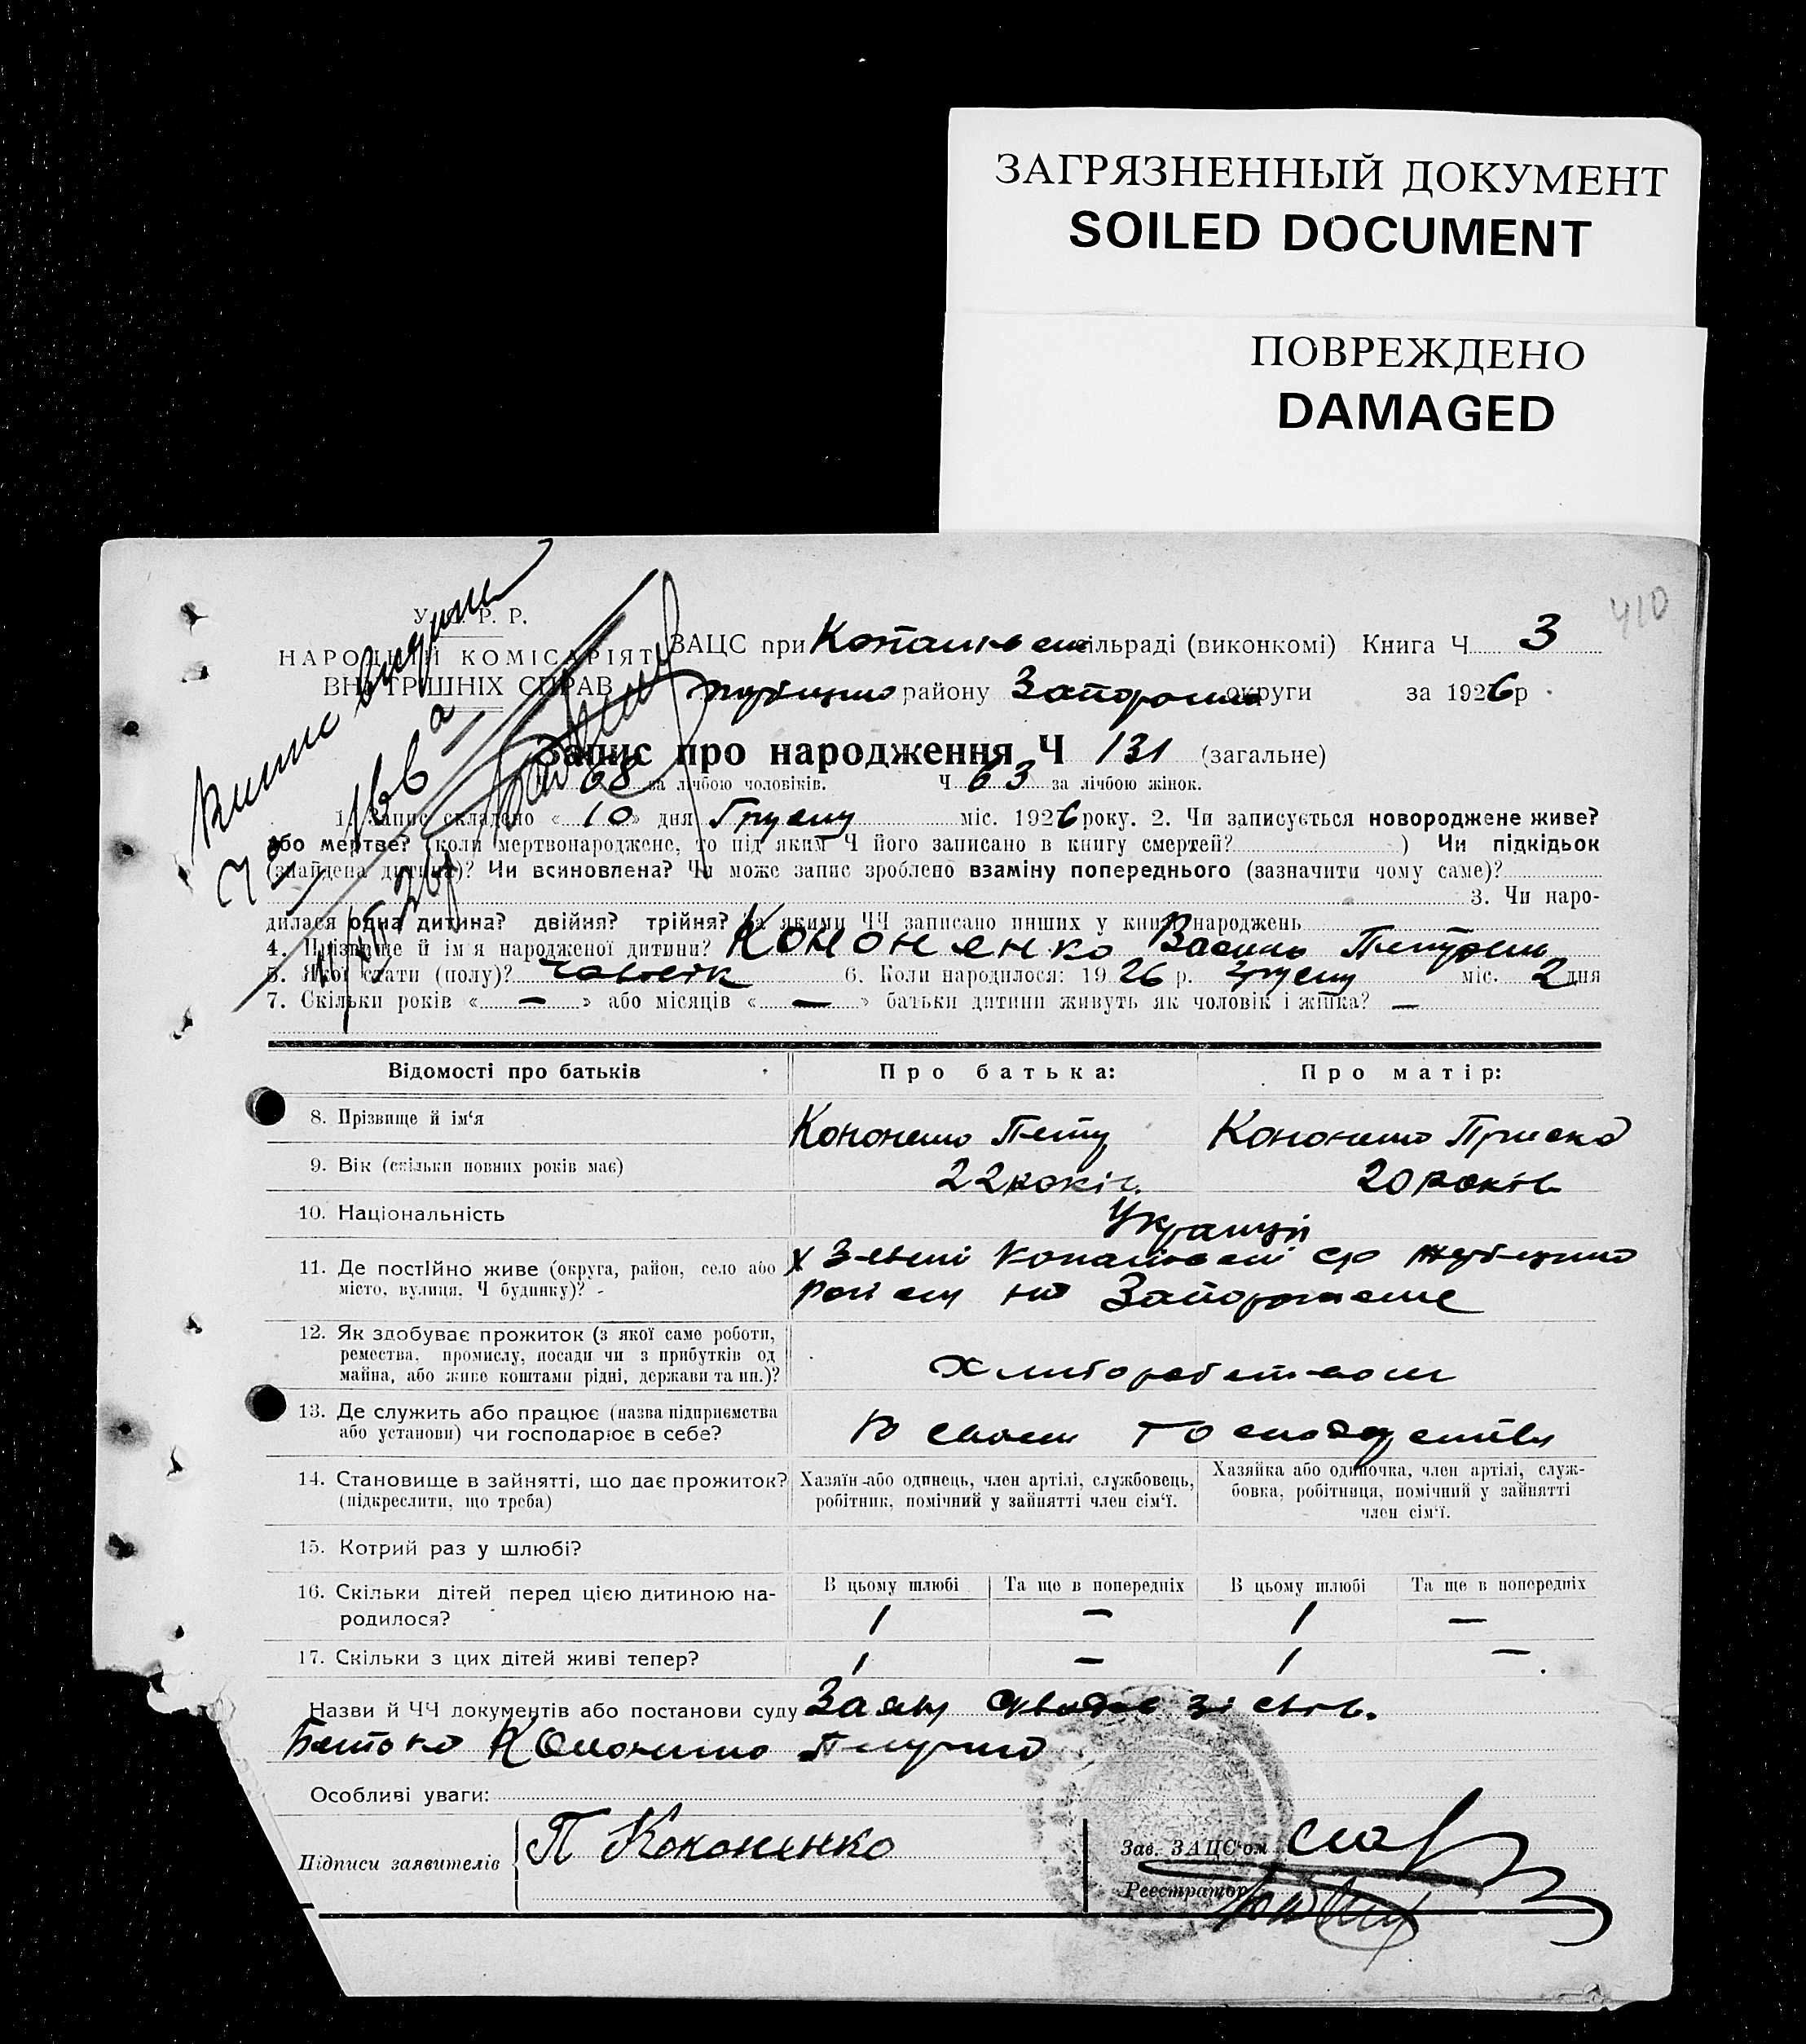 ЗАГРЯЗНЕННЫЙ ДОКУМЕНТ
SOILED DOCUMENT
ПОВРЕЖДЕНО
DAMAGED
410
У. С. Р. Р.
НАРОДНІЙ КОМІСАРІЯТ
ВНУТРІШНІХ СПРАВ
ЗАЦС при сільраді (виконкомі) Книга Ч 3
району округи за 1926 р.
Запис про народження Ч 131 (загальне)
68 за лічбою чоловіків. Ч 63 за лічбою жінок.
1. Запис складено « 10 » дня Грудня міс. 1926 року. 2. Чи записується новороджене живе?
або мертве? (коли мертвонароджене, то під яким Ч його записано в книгу смертей? ) Чи підкідьок
(знайдена дитина)? Чи всиновлена? Чи може запис зроблено взаміну попереднього (зазначити чому саме)?
3. Чи наро-
дилася одна дитина? двійня? трійня? За якими ЧЧ записано инших у книзі народжень
4. Прізвище й ім'я народженої дитини? Кононенко Василь Петрович
5. Якої стати (полу)? 6. Коли народилося: 1926 р. грудня міс. 2 дня
7. Скільки років « — » або місяців « — » батьки дитини живуть як чоловік і жінка? —
Відомості про батьків Про батька: Про матір:
8. Прізвище й ім'я Кононенко Петро Кононенко Приська
9. Вік (скільки повних років має) 22 років 20 років
10. Національність Українці
11. Де постійно живе (округа, район, село або
місто, вулиця, Ч будинку)?
12. Як здобуває прожиток (з якої саме роботи,
ремества, промислу, посади чи з прибутків од
майна, або живе коштами рідні, держави та ин.)?
13. Де служить або працює (назва підприємства
або установи) чи господарює в себе?
14. Становище в зайнятті, що дає прожиток? Хазяїн або одинець, член артілі, службовець, Хазяйка або одиночка, член артілі, служ-
(підкреслити, що треба) робітник, помічний у зайнятті член сім'ї. бовка, робітниця, помічний у зайнятті
член сім'ї.
15. Котрий раз у шлюбі?
16. Скільки дітей перед цією дитиною на- В цьому шлюбі Та ще в попередніх В цьому шлюбі Та ще в попередніх
родилося? 1 — 1 —
17. Скільки з цих дітей живі тепер? 1 — 1 —
Назви й ЧЧ документів або постанови суду
Батько Кононенко
Особливі уваги:
Підписи заявителів П Кононенко Зав. ЗАЦС'ом
Реєстратор